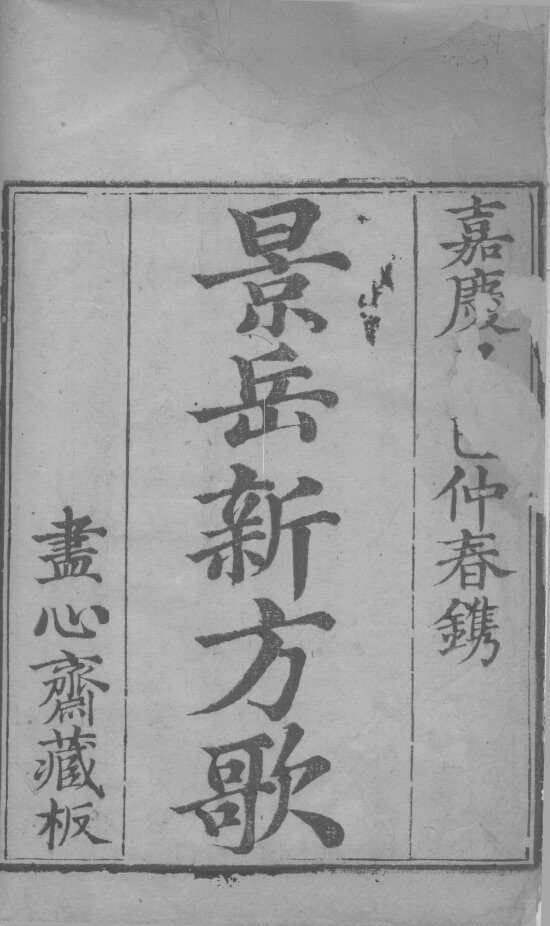 嘉慶 仲春鐫
景岳新方歌
盡心齋藏板